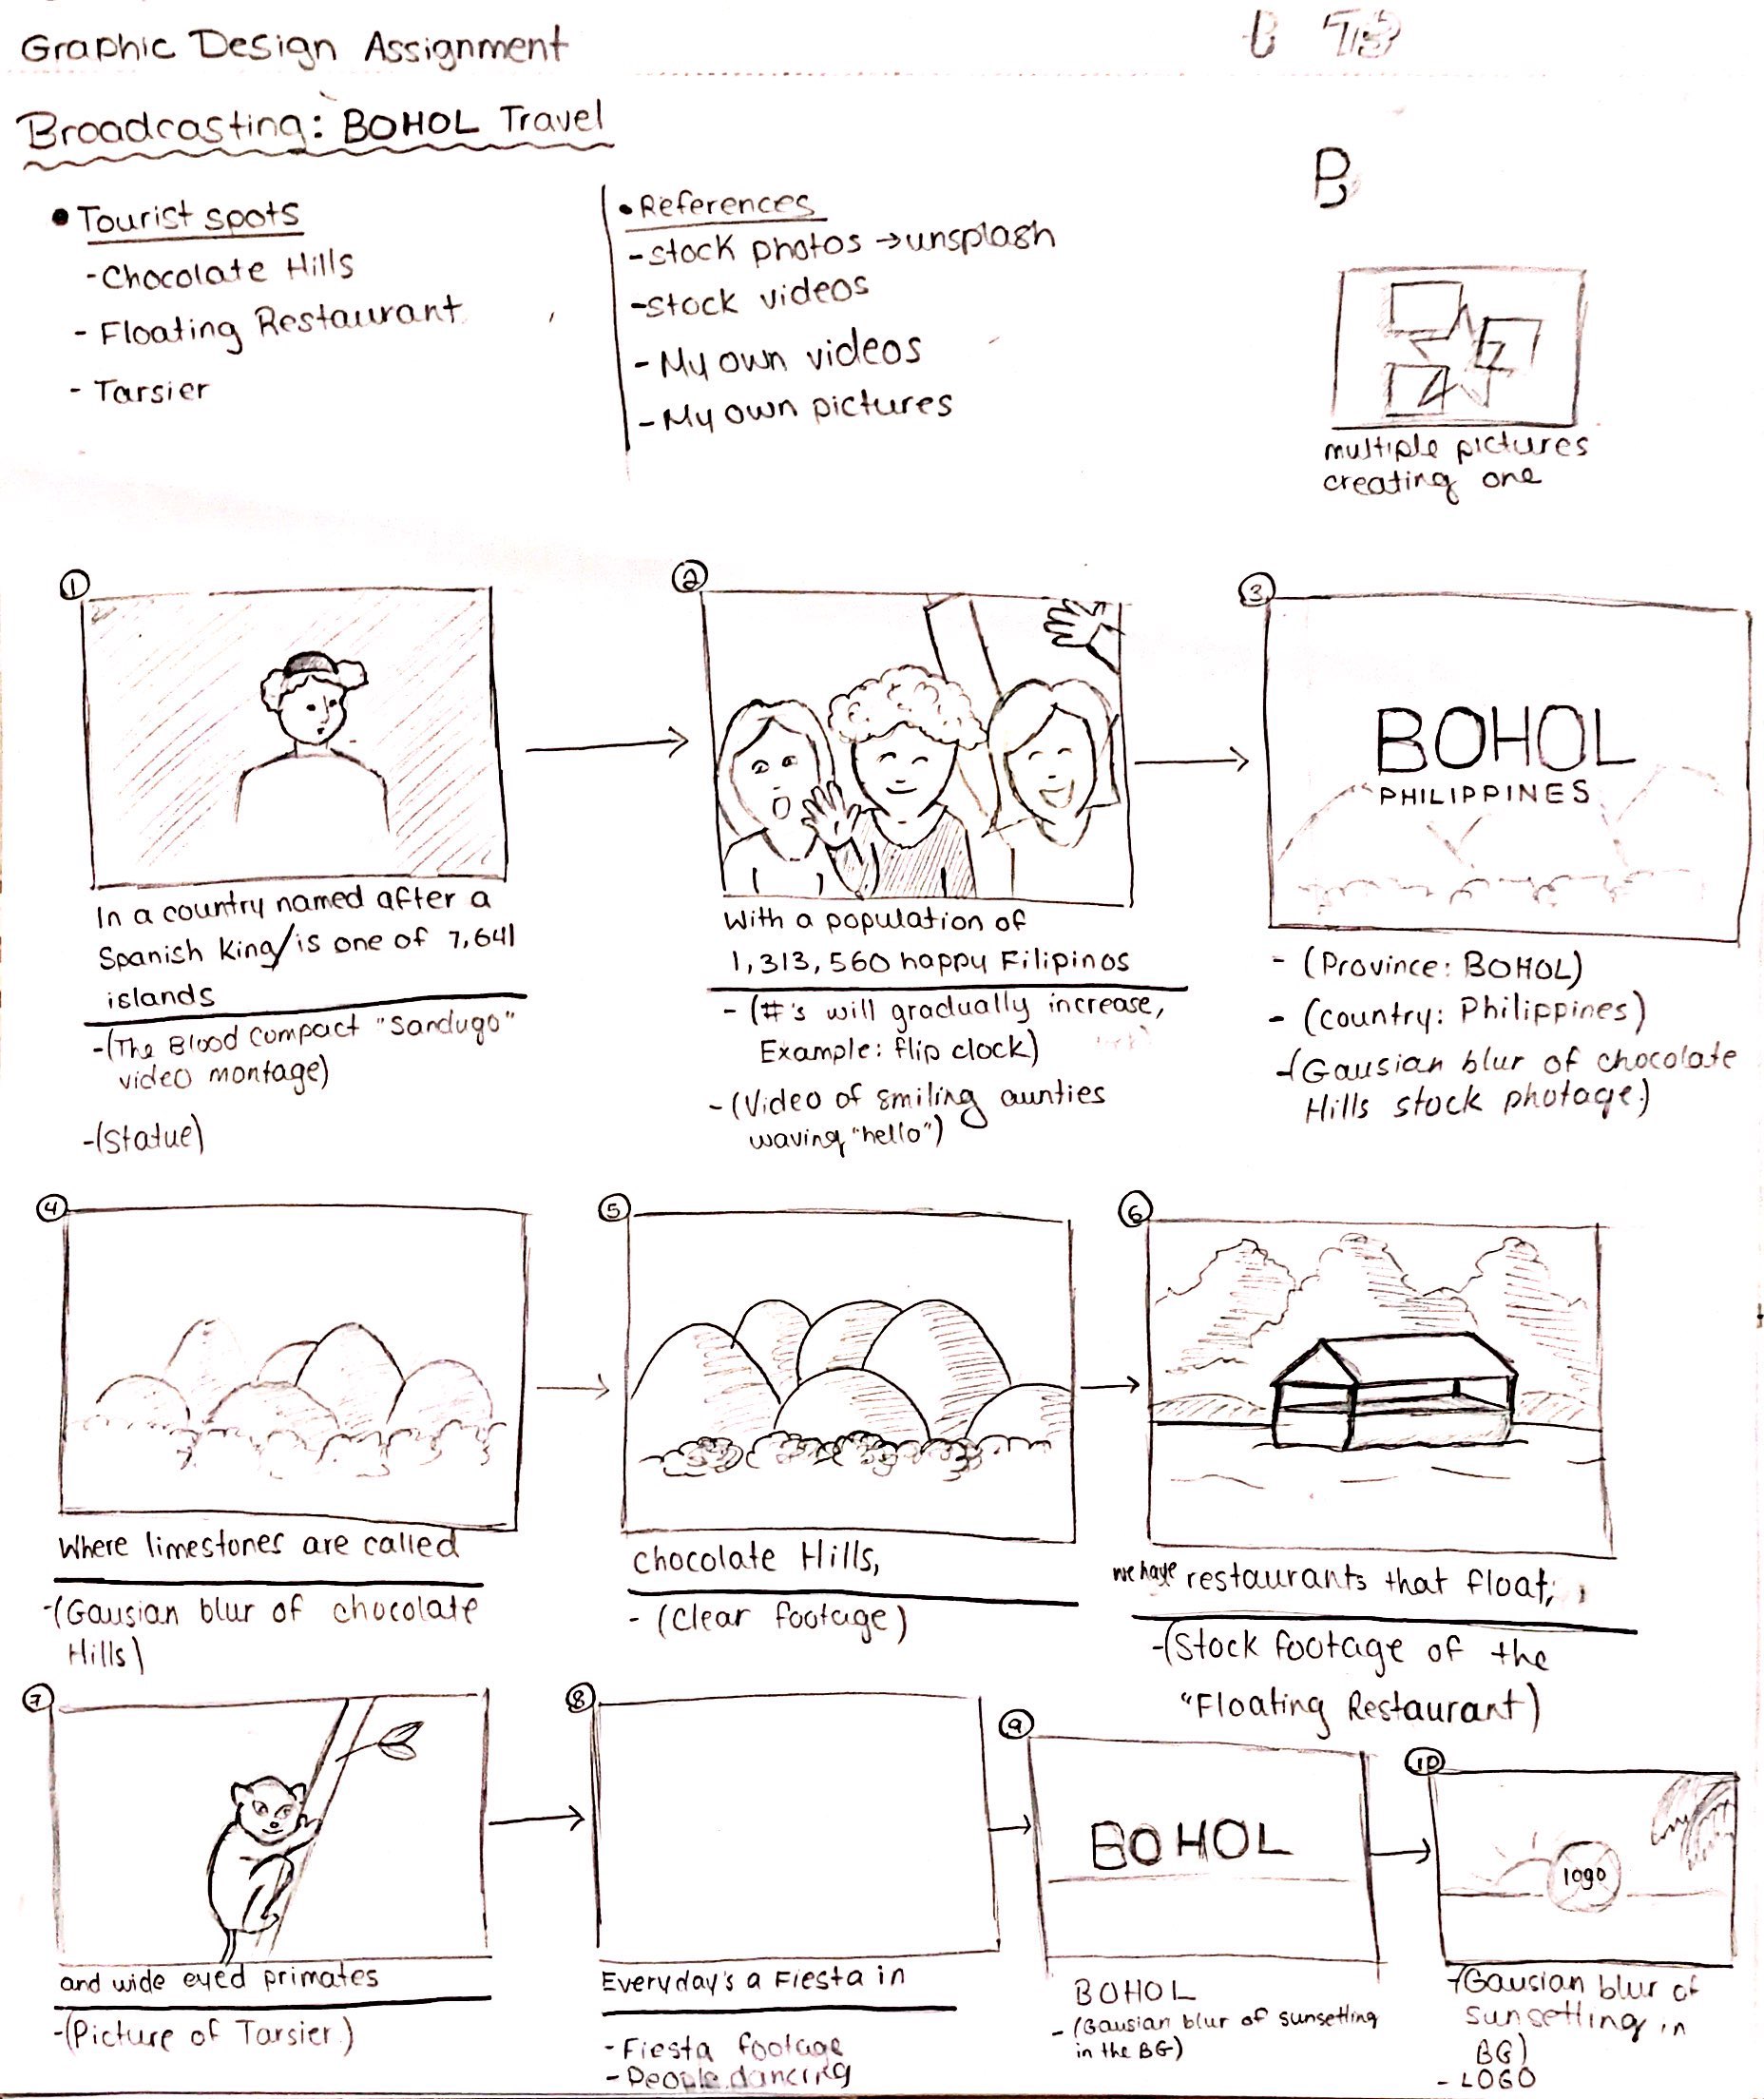 Graphic Design Assignment
Broadcasting: BOHOL Travel
• Tourist spots
- Chocolate Hills
- Floating Restaurant
- Tarsier
• References
- stock photos → unsplash
- stock videos
- My own videos
- My own pictures
B
multiple pictures
creating one
1
In a country named after a
Spanish king/is one of 7,641
islands
-(The Blood Compact "Sandugo"
video montage)
-(Statue)
2
With a population of
1,313,560 happy Filipinos
- (#'s will gradually increase,
Example: flip clock)
- (Video of smiling aunties
waving "hello")
3
BOHOL
PHILIPPINES
- (Province: BOHOL)
- (country: Philippines)
-(Gausian blur of chocolate
Hills stock photage.)
4
Where limestones are called
-(Gausian blur of chocolate
Hills)
5
chocolate Hills,
- (Clear footage)
6
we have restaurants that float,
-(Stock footage of the
"Floating Restaurant)
7
and wide eyed primates
-(Picture of Tarsier.)
8
Everyday's a Fiesta in
- Fiesta footage
- People dancing
9
BOHOL
BOHOL
- (Gausian blur of sunsetting
in the BG)
10
logo
-(Gausian blur of
sunsetting in
BG)
- LOGO